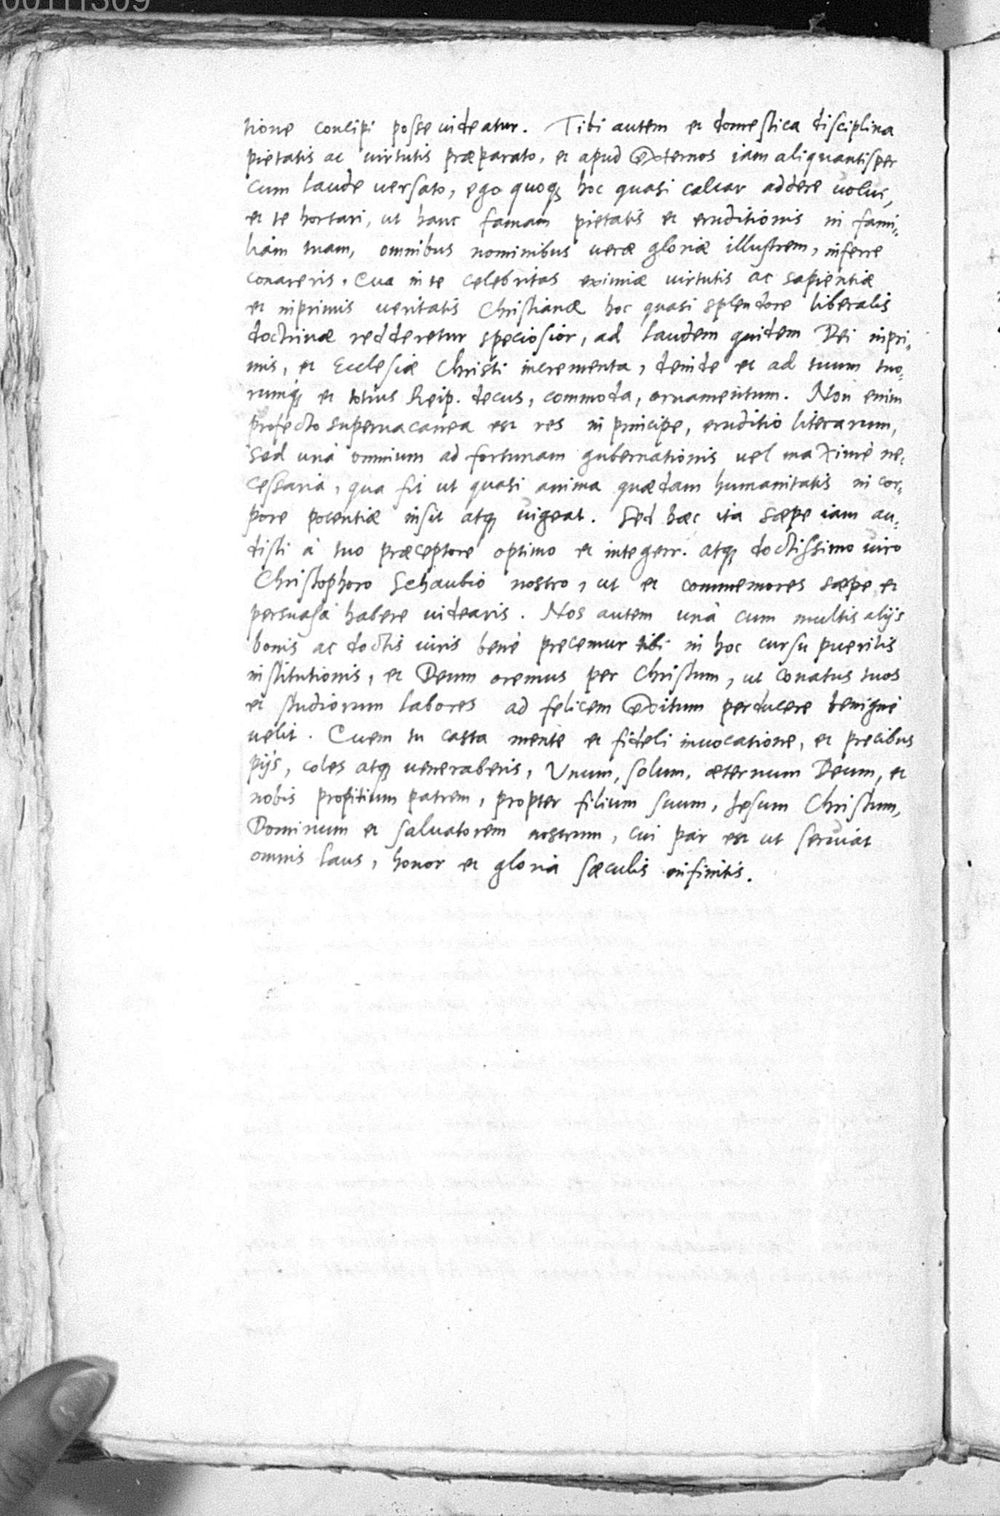 00111309
tione concipi posse uideatur. Tibi autem et domestica disciplina
pietatis ac uirtutis præparato, et apud externos iam aliquantisper
cum laude uersato, ego quoqꝫ hoc quasi calcar addere uolui,
et te hortari, ut hanc famam pietatis et eruditionis in fami-
liam tuam, omnibus nominibus ueræ gloriæ illustrem, inferre
conareris. Qua in te celebritas eximiæ uirtutis ac sapientiæ
et inprimis ueritatis Christianæ hoc quasi splendore liberalis
doctrinæ redderetur speciosior, ad laudem quidem Dei inpri-
mis, et Ecclesiæ Christi incrementa, deinde et ad tuum tuo-
rumqꝫ et totius Reip. decus, commoda, ornamentum. Non enim
profecto superuacanea est res in principe, eruditio literarum,
sed unà omnium ad fortunam gubernationis uel maximè ne-
cessaria, qua fit ut quasi anima quædam humanitatis in cor-
pore potentiæ insit atqꝫ uigeat. Sed hæc ita sæpe iam au-
disti à tuo præceptore optimo et integerr. atqꝫ doctissimo uiro
Christophoro Schaubio nostro, ut et commemores sæpe et
persuasa habere uidearis. Nos autem unà cum multis alijs
bonis ac doctis uiris benè precemur tibi in hoc cursu puerilis
institutionis, et Deum oremus per Christum, ut conatus tuos
et studiorum labores ad felicem exitum perducere benignè
uelit. Quem tu casta mente et fideli inuocatione, et precibus
pijs, coles atqꝫ ueneraberis, Vnum, solum, æternum Deum, et
nobis propitium patrem, propter filium suum, Iesum Christum,
Dominum et saluatorem nostrum, cui par est ut seruiat
omnis laus, honor et gloria sæculis infinitis.